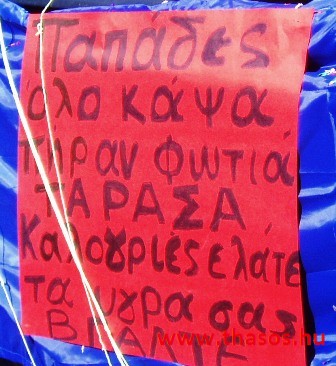 Παπάδες
όλο κάψα
πήραν φωτιά
ΤΑΡΑΣΑ
Καλογριές ελάτε
τα υγρα σας
ΒΓΑΛΤΕ
www.thasos.hu